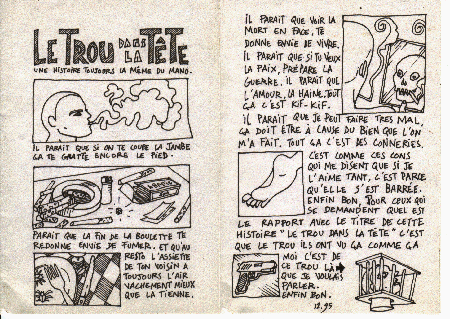 LE TROU DANS LA TÊTE
UNE HISTOIRE TOUJOURS LA MÊME DU MANO.
IL PARAIT QUE SI ON TE COUPE LA JAMBE
ÇA TE GRATTE ENCORE LE PIED.
PARAIT QUE LA FIN DE LA BOULETTE TE
REDONNE ENVIE DE FUMER. ET QU'AU
RESTO L'ASSIETTE
DE TON VOISIN A
TOUJOURS L'AIR
VACHEMENT MIEUX
QUE LA TIENNE.
IL PARAIT QUE VOIR LA
MORT EN FACE, TE
DONNE ENVIE DE VIVRE.
IL PARAIT QUE SI TU VEUX
LA PAIX, PRÉPARE LA
GUERRE. IL PARAIT QUE
L'AMOUR, LA HAINE, TOUT
ÇA C'EST KIF-KIF.
IL PARAIT QUE JE PEUT FAIRE TRES MAL.
ÇA DOIT ETRE À CAUSE DU BIEN QUE L'ON
M'A FAIT. TOUT ÇA C'EST DES CONNERIES.
C'EST COMME CES CONS
QUI ME DISENT QUE SI JE
L'AIME TANT, C'EST PARCE
QU'ELLE S'EST BARRÉE.
ENFIN BON, POUR CEUX QUI
SE DEMANDENT QUEL EST
LE RAPPORT AVEC LE TITRE DE CETTE
HISTOIRE "LE TROU DANS LA TÊTE" C'EST
QUE LE TROU ILS ONT VU ÇA COMME ÇA
MOI C'EST DE
CE TROU LÀ
QUE JE VOULAIS
PARLER.
ENFIN BON.
12.95